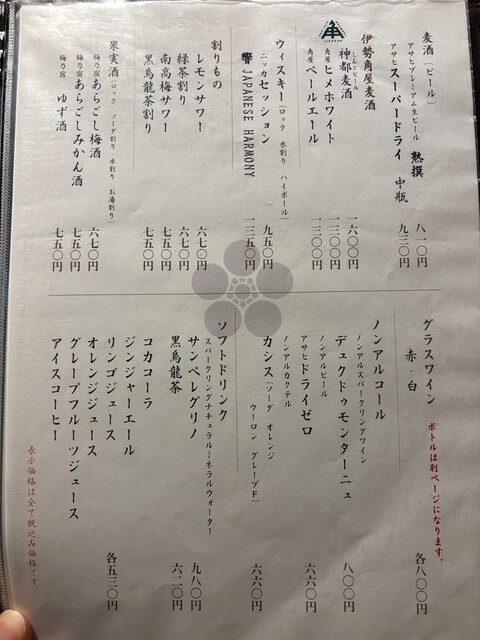 麦酒(ビール)
アサヒプレミアム生ビール 熟撰 八一〇円
アサヒスーパードライ 中瓶 九三〇円
伊勢角屋麦酒
しんとビール
神都麦酒 一六〇〇円
角屋 ヒメホワイト 一三〇〇円
角屋 ペールエール 一三〇〇円
ウィスキー(ロック 水割り ハイボール)
ニッカセッション 九五〇円
響 JAPANESE HARMONY 一三五〇円
割りもの
レモンサワー 六七〇円
緑茶割り 六七〇円
南高梅サワー 七五〇円
黒烏龍茶割り 七五〇円
果実酒(ロック ソーダ割り 水割り お湯割り)
梅乃宿 あらごし梅酒 六七〇円
梅乃宿 あらごしみかん酒 七五〇円
梅乃宿 ゆず酒 七五〇円
グラスワイン ボトルは別ページになります。
赤・白 各八〇〇円
ノンアルコール
ノンアルスパークリングワイン
デュクドゥモンターニュ 八〇〇円
ノンアルビール
アサヒドライゼロ 六六〇円
ノンアルカクテル
カシス(ソーダ・オレンジ・ウーロン・グレープF) 六六〇円
ソフトドリンク
スパークリングナチュラルミネラルウォーター
サンペレグリノ 九八〇円
黒烏龍茶 六二〇円
コカコーラ
ジンジャーエール
リンゴジュース
オレンジジュース
グレープフルーツジュース
アイスコーヒー
各五三〇円
表示価格は全て税込み価格です。